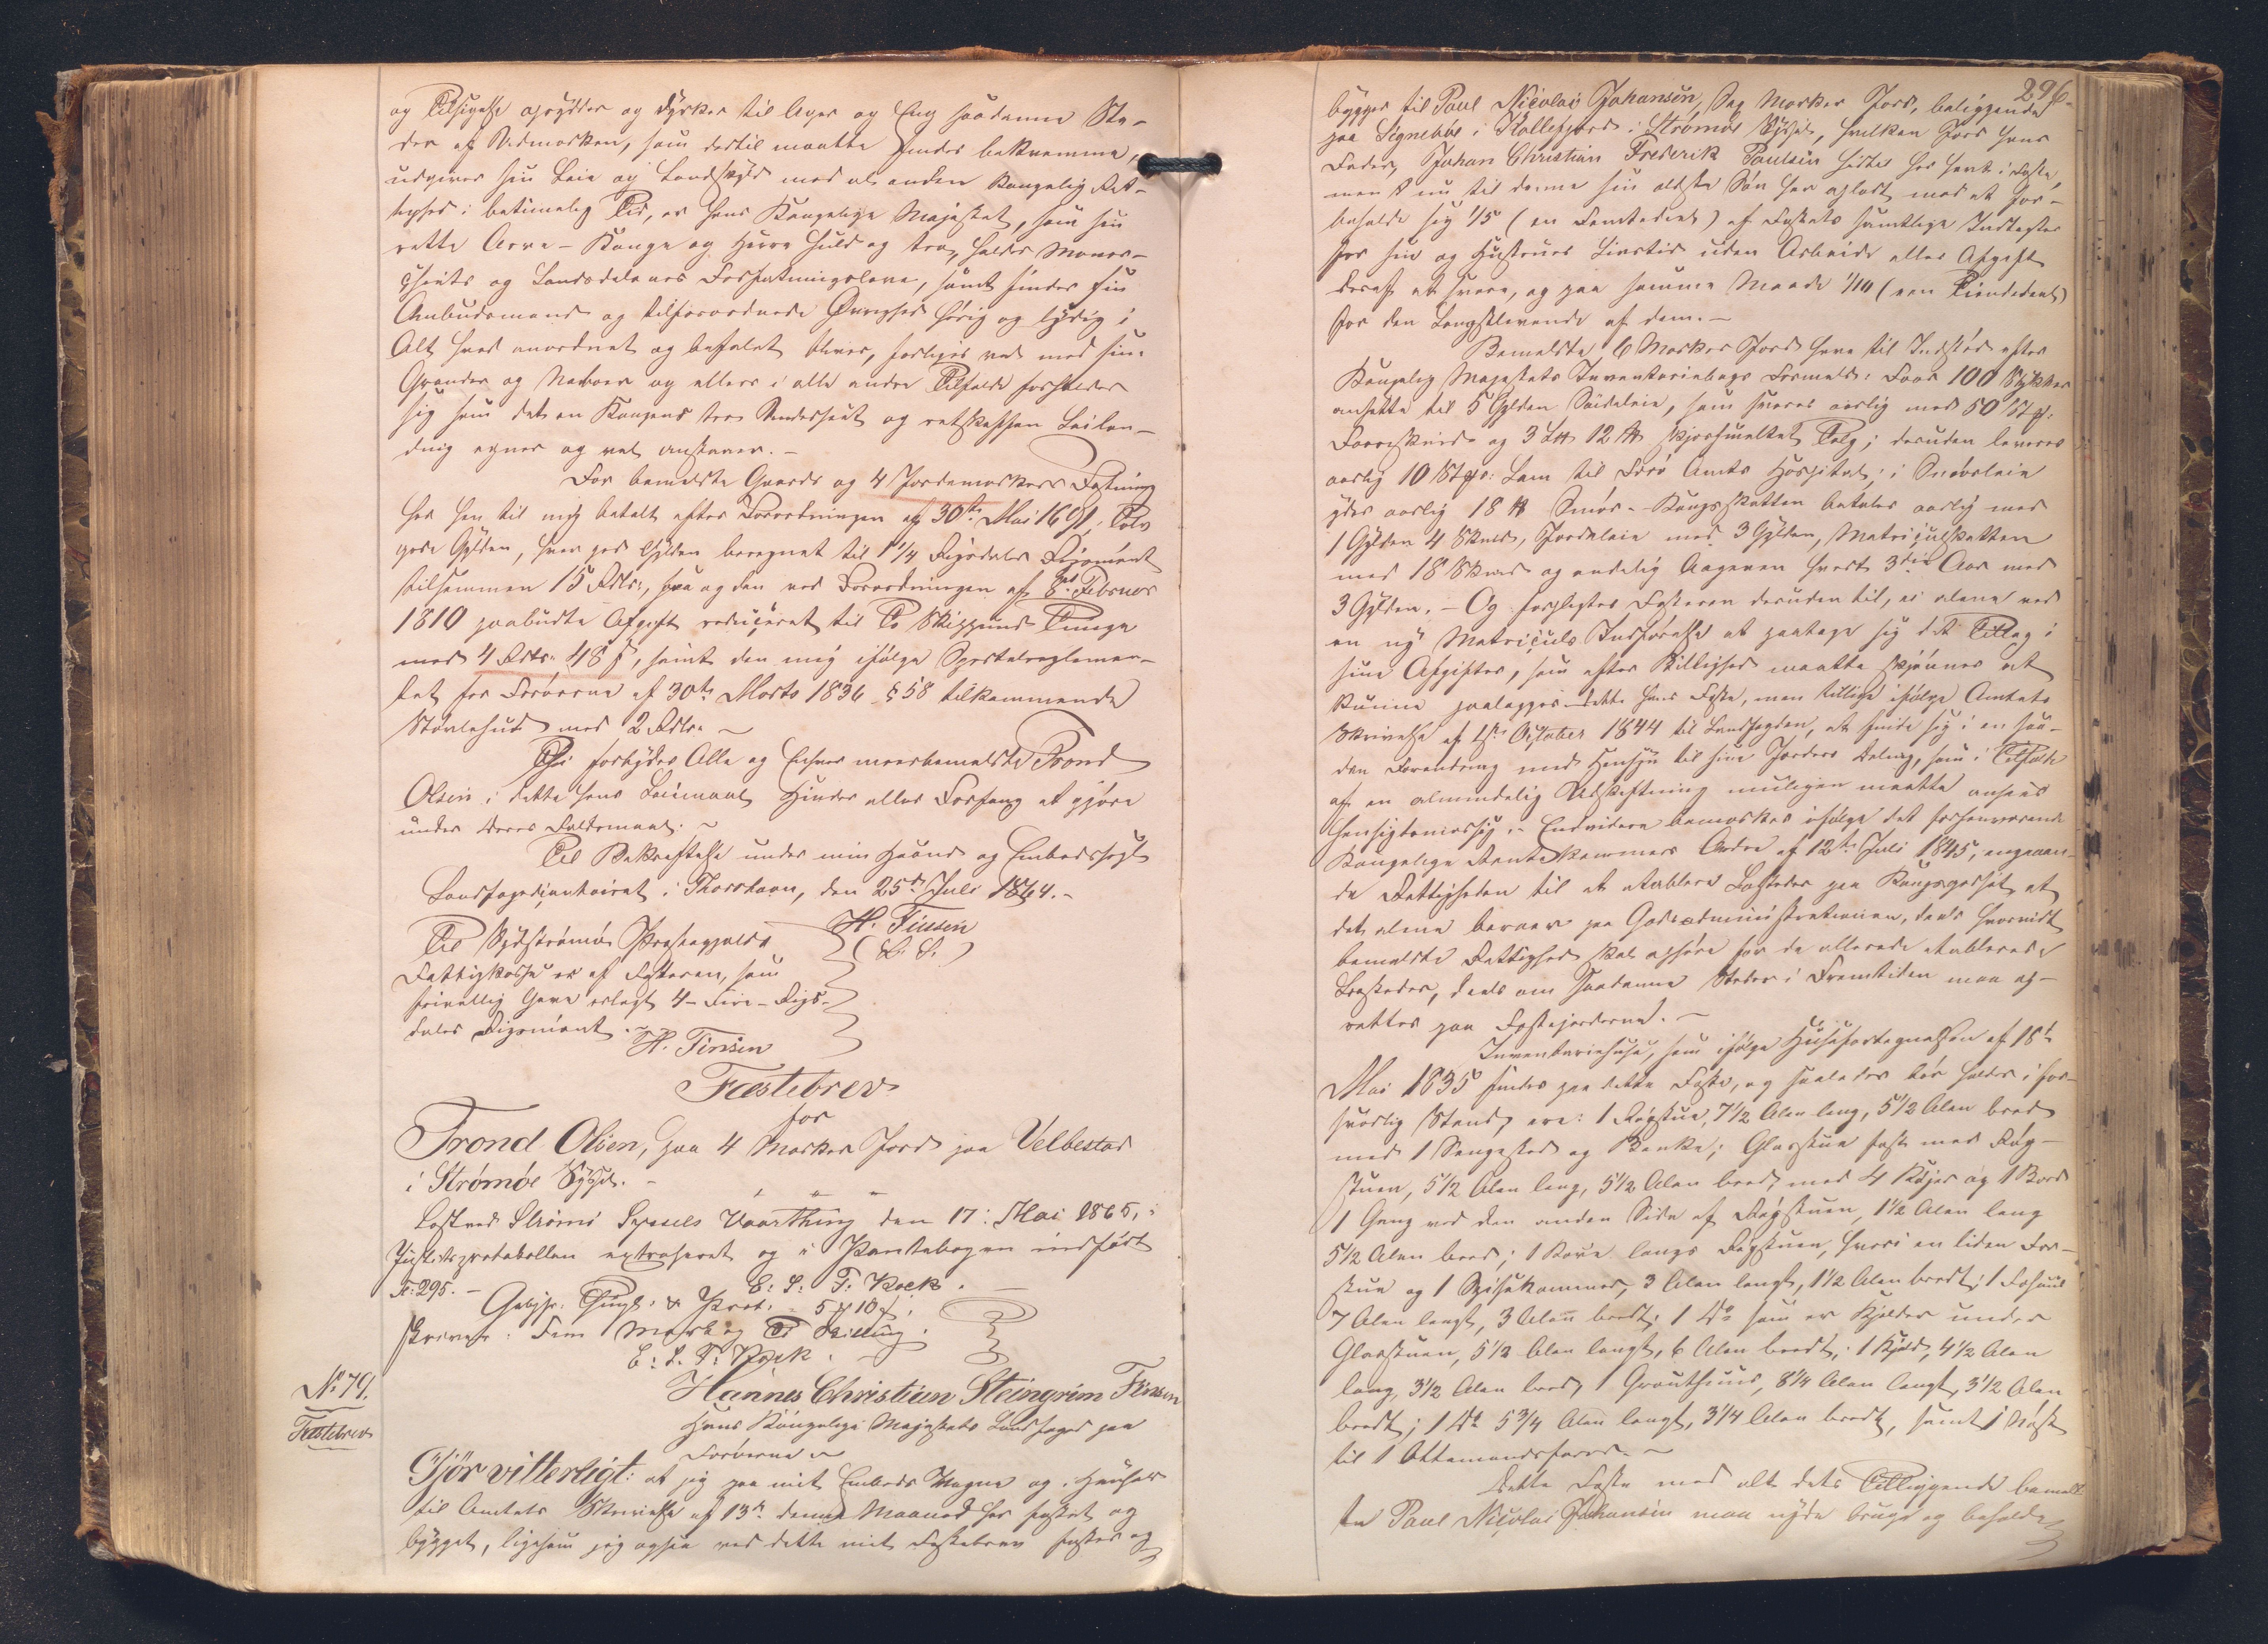 og Tilsigelse oprydder og dyrker til Ager og Eng saadanne Ste-
der af Udmarken, som dertil maatte findes bekvemme,
udgiver sin Leie og Landskyld med al anden Kongelig Ret-
tighed i betimelig Tid, er Hans Kongelige Majestæt, som sin
rette Arve-Konge og Herre huld og tro, holder Monar-
chiets og Landsdelenes Forfatningslove, samt sin
Ambudsmand og tilforordnede Øvrighed hørig og lydig i
Alt hvad anordnet og befalet bliver, forliges vel med sine
Grander og Naboer og ellers i alle andre Tilfælde forholder
sig som det en Kongens tro Undersaat og retskaffen Leilæn-
ding egner og vel anstaaer. -
For bemeldte Gaards og 4 Jordemarkers Fæstning
har han til mig betalt efter Forordningen af 30te Mai 1691, Tolv
gode Gylden, hver god Gylden beregnet til 1 1/4 Rigsdaler Rigsmønt
tilsammen 15 Rdlr., saa og den ved Forordningen af 8de Februar
1810 paabudte Afgift reduceret til To Skippund Tunge
med 4 Rdlr. 48 ß, samt den mig ifølge Sportelreglemen-
tet for Færøerne af 30te Marts 1836 § 58 tilkommende
Støvlehud med 2 Rdlr. ~
Thi forbydes Alle og Enhver meerbemeldte Trond
Olsen i dette hans Leiemaal Hinder eller Forfang at gjøre
under deres Faldsmaal. ~
Til Bekræftelse under min Haand og Embedssegl
Landfogedcontoiret i Thorshavn, den 25de Juli 1864. -
H. Finsen
(L. S.)
Til Sydstrømø Præstegjælds
Fattigkasse er af Fæsteren, som
frivillig Gave erlagt 4 - Fire - Rigs-
daler Rigsmønt. ~
H. Finsen
Fæstebrev
for
Trond Olsen, paa 4 Marker Jord paa Velbestad
i Strømøe Syssel. -
Læst ved Strømø Syssels Vaarthing den 17: Mai 1865, i
Justitsprotokollen extraheret og i Pantebogen indført
Fo: 295. - E: L: F: Kock.
Gebyr: Thingl: & Prot. 5 # 10 ß.
skriver: Fem Mark og Ti Skilling.
E: L. F: Kock.
No 79.
Fæstebrev
Hannes Christian Steingrim Finsen
Hans Kongelige Majestæts Landfoged paa
Færøerne ~
Gjør vitterligt: at jeg paa mit Embeds Vegne og i Henhold
til Amtets Skrivelse af 13de denne Maaned har fæstet og
bygget, ligesom jeg ogsaa ved dette mit Fæstebrev fæster og
296.
bygger til Paul Nicolai Johansen, Sex Marker Jord, beliggende
paa Signebøe i Kollefjord i Strømøe Syssel, hvilken Jord hans
Fader, Johan Christian Frederik Poulsen hidtil har havt i Fæste,
men nu til denne sin ældste Søn har afladt mod at for-
beholde sig 1/5 (en Femtedeel) af Fæstets samtlige Indtægter
for sin og Hustrues Livstid uden Arbeide eller Afgift
deraf at svare, og paa samme Maade 1/10 (een Tiendedeel)
for den Længstlevende af dem. -
Bemeldte 6 Marker Jord have til Indstød efter
Kongelig Majestæts Inventariebogs Formeld: Faar 100 Stykker
ansatte til 5 Gylden Søideleie, som svares aarlig med 50 Stk:
Faareskind og 3 L# 12 # skjørsmeltet Talg; desuden leveres
aarlig 10 Stk: Lam til Færø Amts Hospital; i Smørleie
ydes aarlig 18 # Smør. - Kongsskatten betales aarlig med
1 Gylden 4 Skind, Jordeleie med 3 Gylden, Matriculskatten
med 18 Skind og endelig Aagaven hvert 3die Aar med
3 Gylden. - Og forpligtes Fæsteren desuden til, ei alene ved
en ny Matriculs Indførelse at paatage sig det Tillæg i
sine Afgifter, som efter Billighed maatte skjønnes at
kunne paalægges dette hans Fæste, men tillige ifølge Amtets
Skrivelse af 4de October 1844 til Landfogden, at finde sig i en saa-
dan Forandring med Hensyn til sine Jorders Deling, som i Tilfælde
af en almindelig Udskiftning muligen maatte ansees
hensigtsmæssig. - Endvidere bemærkes ifølge det forhenværende
Kongelige Rentekammers Ordre af 12te Juli 1845, angaaen-
de Rettigheden til at etablere Bosteder paa Kongsgodset at
det alene beroer paa Godsadministrationen, deels hvorvidt
bemeldte Rettighed skal ophøre for de allerede etablerede
Bosteder, deels om saadanne Steder i Fremtiden maa op-
rettes paa Fæstejorderne. ~
Inventariehuse, som ifølge Husefortegnelsen af 18de
Mai 1835 findes paa dette Fæste, og saaledes bør holdes i for-
svarlig Stand, ere: 1 Røgstue, 7 1/2 Alen lang, 5 1/2 Alen bred
med 1 Sengested og Bænke; Glarstue fast med Røg-
stuen, 5 1/2 Alen lang, 5 1/2 Alen bred, med 4 Køjer og 1 Bord
1 Gang ved den anden Side af Røgstuen, 1 1/2 Alen lang
5 1/2 Alen bred; 1 Kove langs Røgstuen, hvori en liden For-
stue og 1 Spisekammer, 3 Alen langt, 1 1/2 Alen bredt; 1 Fæhuus
7 Alen langt, 3 Alen bredt; 1 Do som er Kjelder under
Glarstuen, 5 1/2 Alen langt, 6 Alen bredt; 1 Kjeld, 4 1/2 Alen
lang, 3 1/2 Alen bred, 1 Grouthuus, 8 1/4 Alen langt, 3 1/2 Alen
bredt; 1 Do 5 3/4 Alen langt, 3 1/4 Alen bredt, samt 1 Nøst
til 1 Ottemandsfarer. ~
Dette Fæste med alt dets Tilliggende bemeld-
te Paul Nicolai Johansen maa nyde bruge og beholde